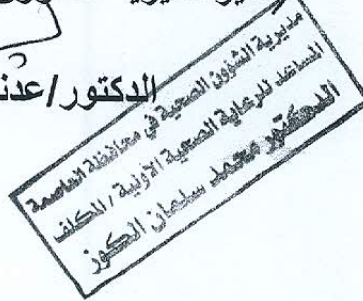 الدكتور/عدن
مديرية الشؤون الصحية في محافظة العاصمة
المساعد للرعاية الصحية الاولية / المكلف
الدكتور محمد سلمان الكوز